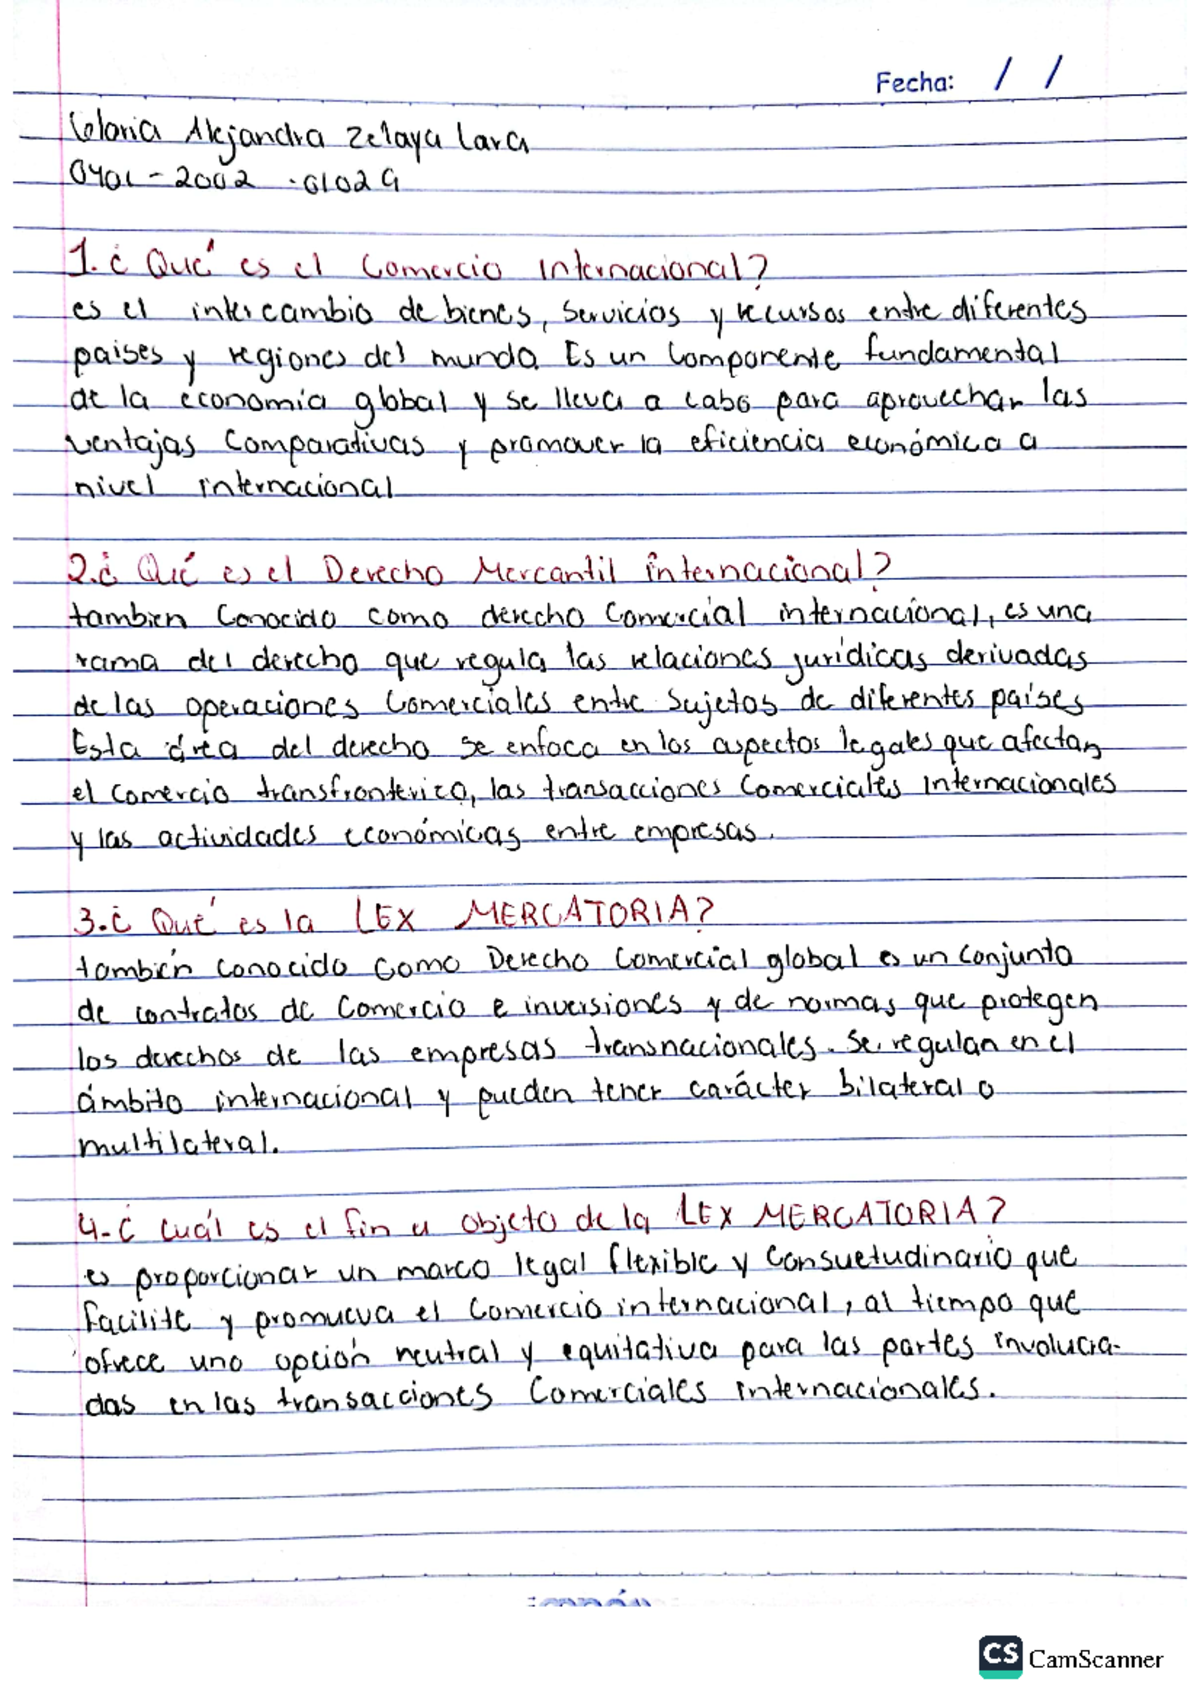 Fecha: / /
Gloria Alejandra Zelaya Lara
0401-2002-01029
1.¿ Qué es el Comercio Internacional?
es el intercambio de bienes, Servicios y recursos entre diferentes
paises y regiones del mundo. Es un Componente fundamental
de la economía global y se lleva a cabo para aprovechar las
ventajas Comparativas y promover la eficiencia económica a
nivel internacional
2.¿ Qué es el Derecho Mercantil internacional?
tambien Conocido como derecho Comercial internacional, es una
rama del derecho que regula las relaciones jurídicas derivadas
de las operaciones Comerciales entre Sujetos de diferentes países
Esta área del derecho se enfoca en los aspectos legales que afectan
el comercio transfronterizo, las transacciones Comerciales internacionales
y las actividades económicas entre empresas.
3.¿ Qué es la LEX MERCATORIA?
también conocido como Derecho Comercial global es un Conjunto
de contratos de Comercio e inversiones y de normas que protegen
los derechos de las empresas transnacionales. Se regulan en el
ámbito internacional y pueden tener carácter bilateral o
multilateral.
4-¿ Cuál es el fin u objeto de la LEX MERCATORIA?
es proporcionar un marco legal flexible y Consuetudinario que
facilite y promueva el Comercio internacional, al tiempo que
ofrece una opción neutral y equitativa para las partes involucra-
das en las transacciones Comerciales internacionales.
CS CamScanner